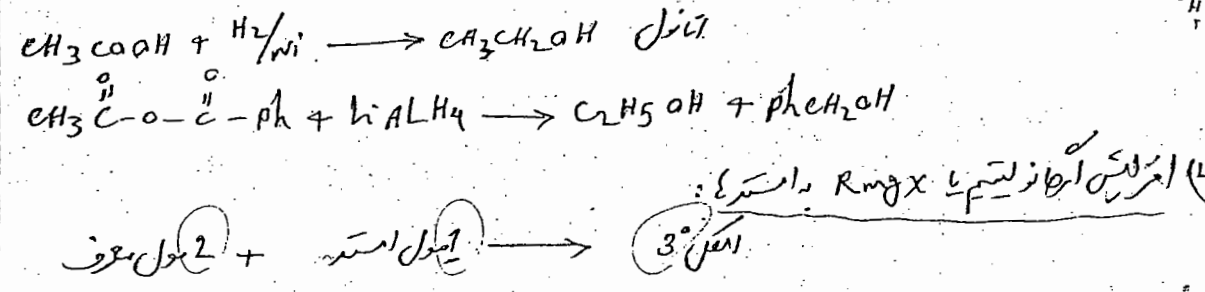 H
CH3COOH + H2/Ni ⟶ CH3CH2OH اتانول
O O
CH3 C-O-C-Ph + LiAlH4 ⟶ C2H5OH + PhCH2OH
افزایش ارگانولیتیم یا RMgX به استرها:
2 مول معرف + 1 مول استر ⟶ الکل 3°